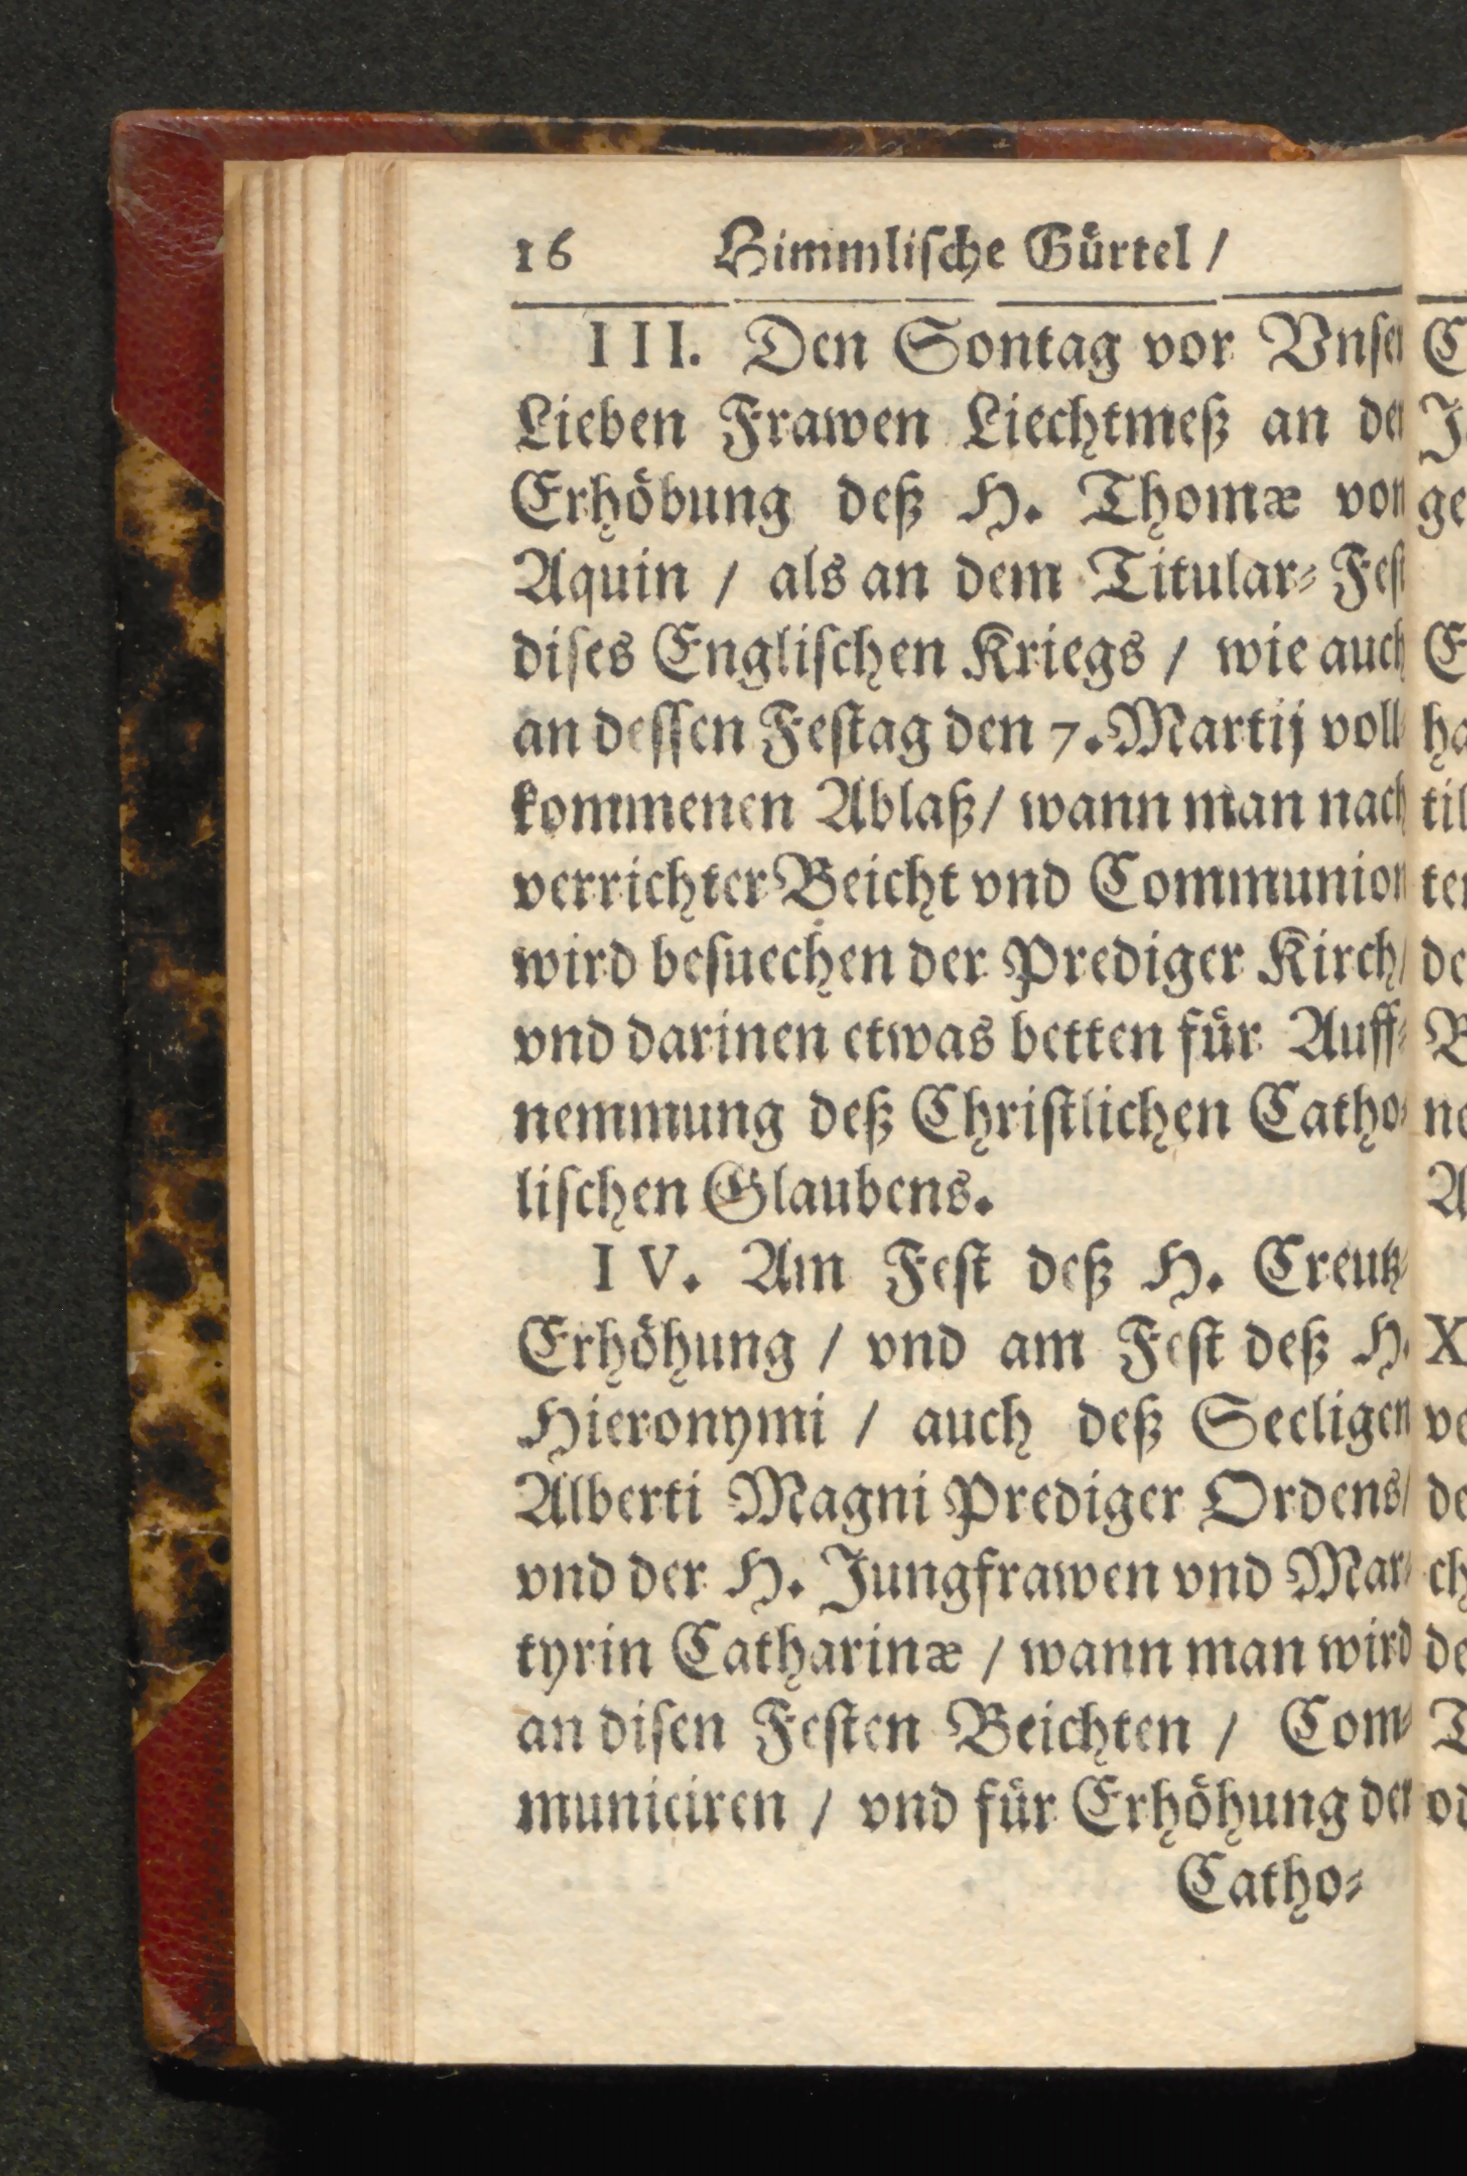 16 Himmliſche Gürtel /
III. Den Sontag vor Vnſer
Lieben Frawen Liechtmeß an der
Erhöbung deß H. Thomæ von
Aquin / als an dem Titular⸗Feſt
diſes Engliſchen Kriegs / wie auch
an deſſen Feſtag den 7. Martij voll⸗
kommenen Ablaß / wann man nach
verrichter Beicht vnd Communion
wird beſuechen der Prediger Kirch /
vnd darinen etwas betten für Auff⸗
nemmung deß Chriſtlichen Catho⸗
liſchen Glaubens.
IV. Am Feſt deß H. Creutz⸗
Erhöhung / vnd am Feſt deß H.
Hieronymi / auch deß Seeligen
Alberti Magni Prediger Ordens /
vnd der H. Jungfrawen vnd Mar⸗
tyrin Catharinæ / wann man wird
an diſen Feſten Beichten / Com⸗
municiren / vnd für Erhöhung der
Catho⸗